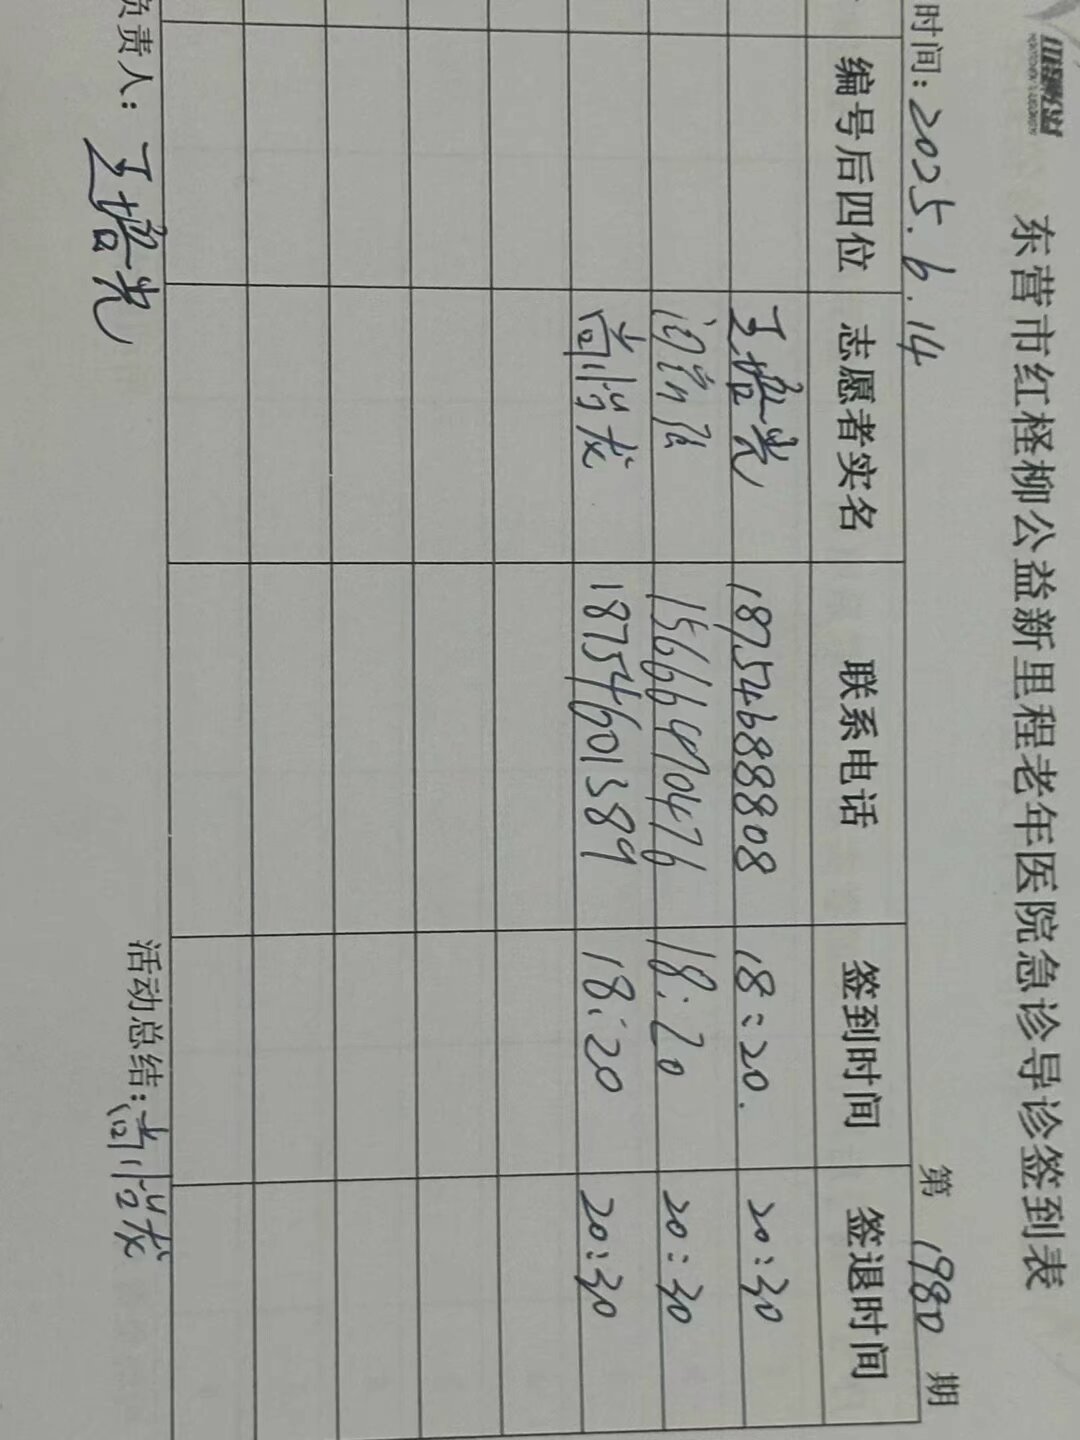 东营市红柽柳公益新里程老年医院急诊导诊签到表
时间：2025.6.14 第 1980 期
编号后四位 志愿者实名 联系电话 签到时间 签退时间
王培光 18754688808 18:20. 20:30
15666470476 18:20 20:30
尚 18754601389 18:20 20:30
负责人：王培光 活动总结：尚